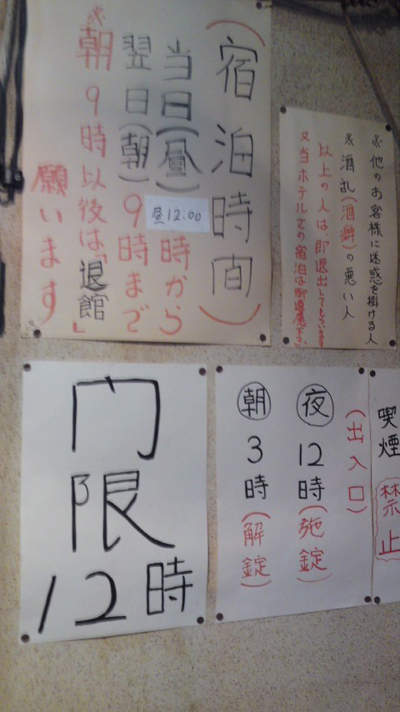 （宿泊時間）
当日（昼）昼12:00時から
翌日（朝）9時まで
※朝9時以後は「退館」
願います
※他のお客様に迷惑を掛ける人
※酒乱（酒癖）の悪い人
以上の人は即退出してもらいます
又当ホテルでの宿泊は
門限
12時
（出入口）
夜12時（施錠）
朝3時（解錠）
喫煙禁止